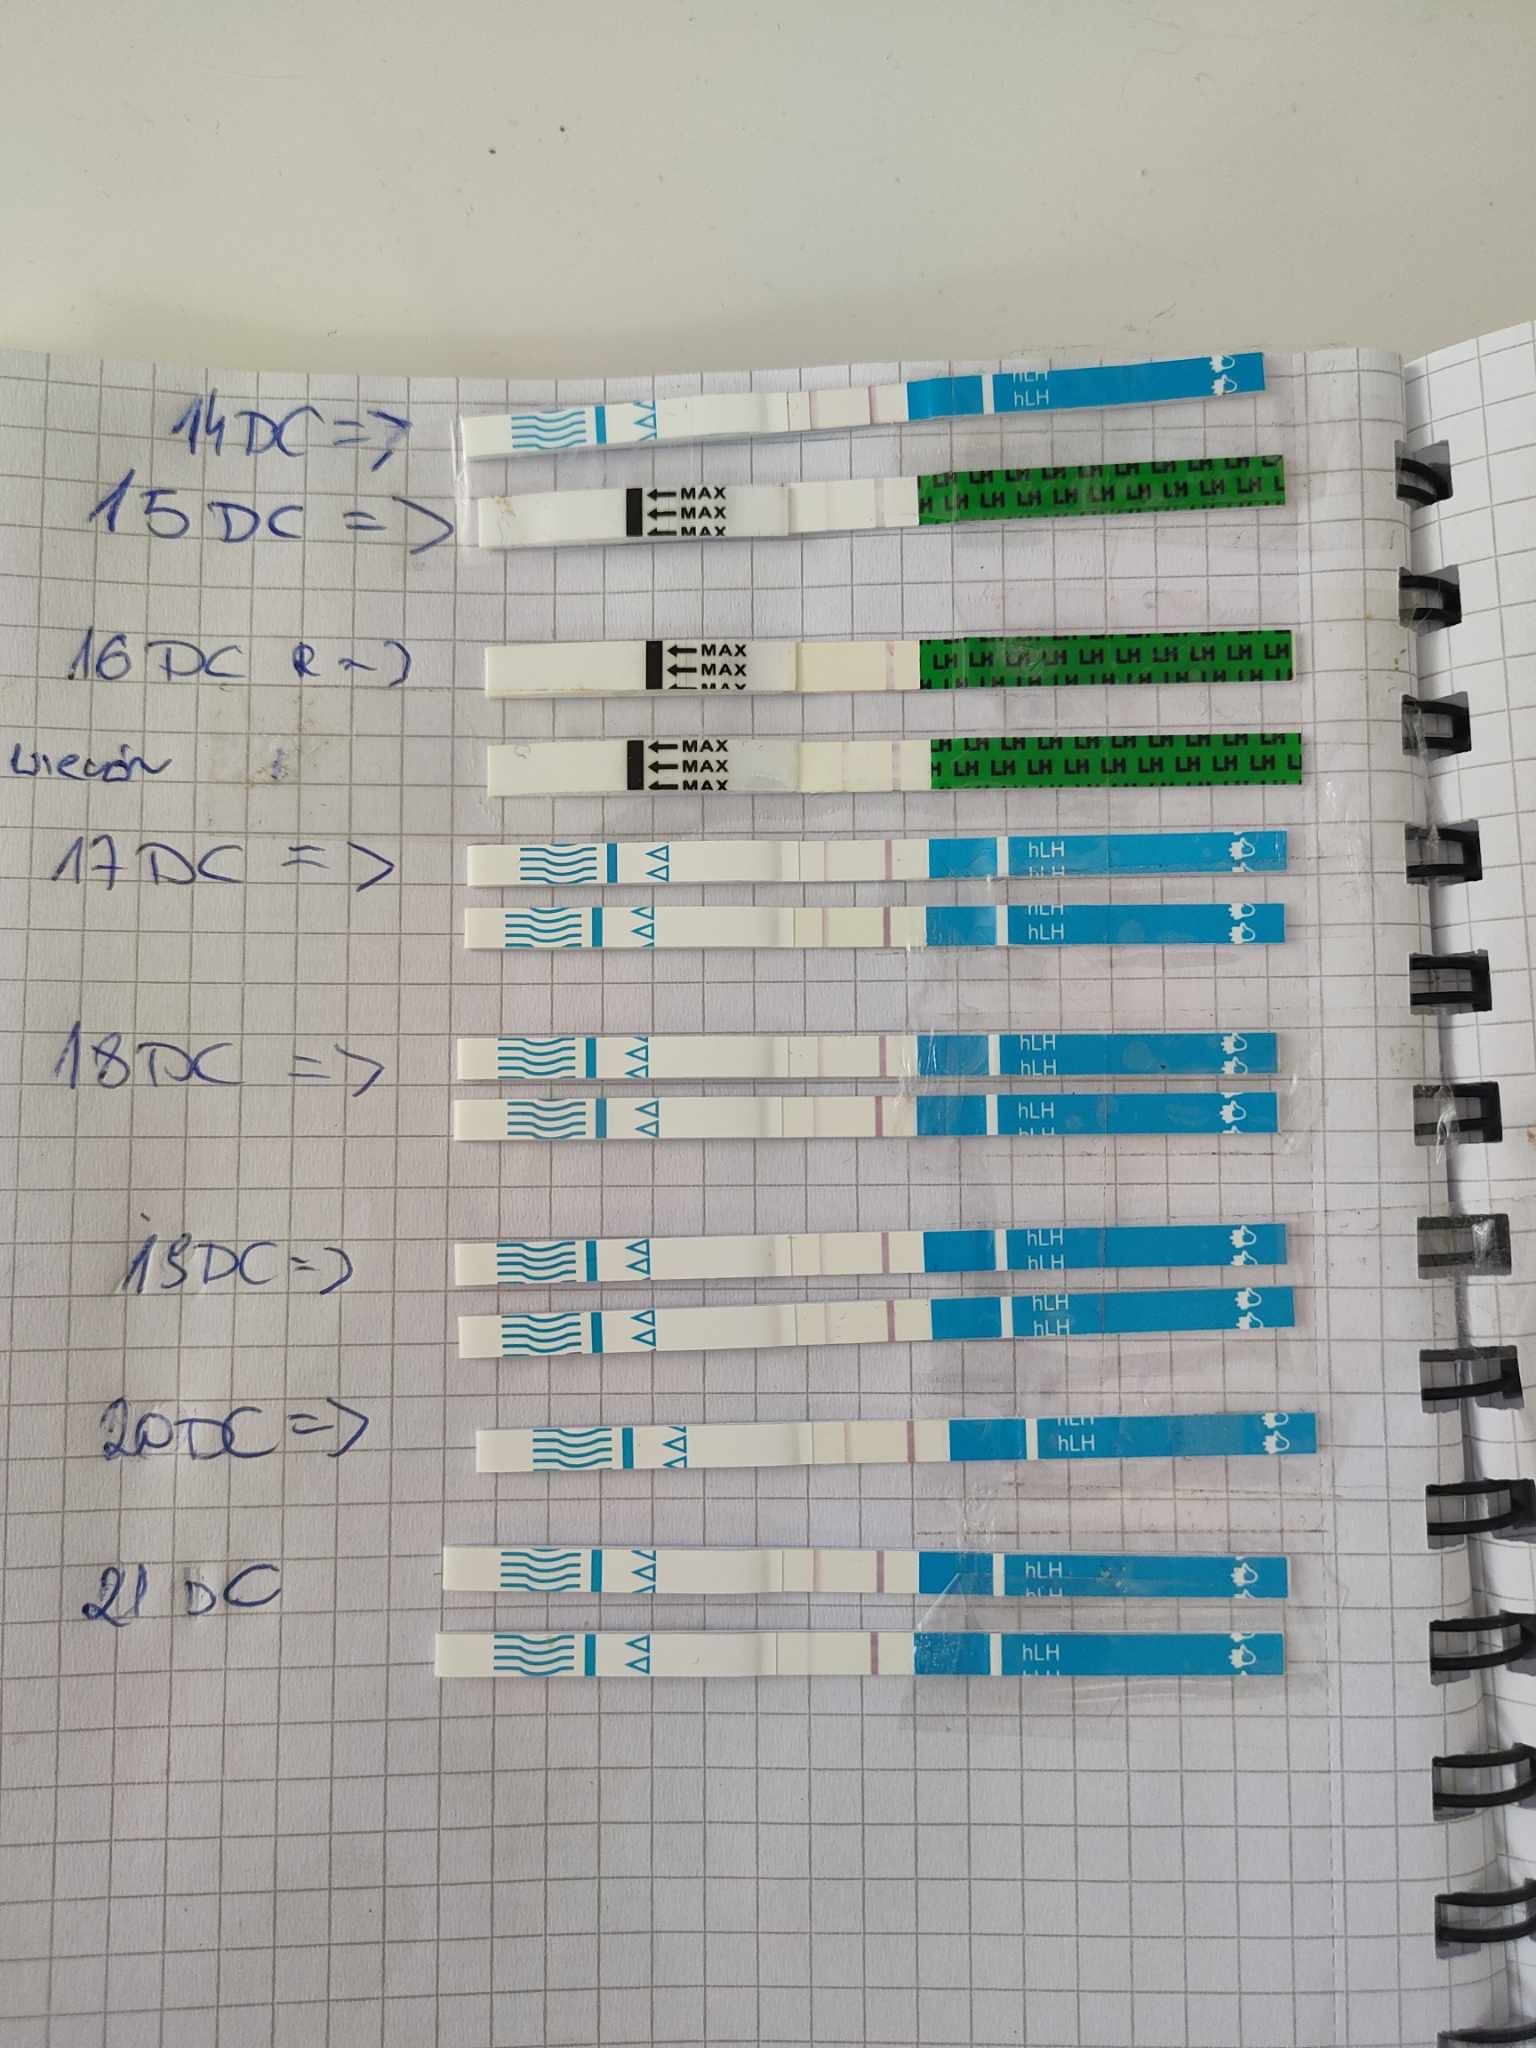 14 DC =>
hLH
hLH
15 DC =>
MAX
MAX
MAX
LH LH LH LH LH LH LH
H LH LH LH LH LH LH LH LH L
16 DC R ->
MAX
MAX
MAX
LH LH LH LH LH LH LH LH LH LH
wieczór
MAX
MAX
MAX
H LH LH LH LH LH LH LH LH L
17 DC =>
hLH
hLH
hLH
hLH
18 DC =>
hLH
hLH
hLH
hLH
19 DC =>
hLH
hLH
hLH
hLH
20 DC =>
hLH
hLH
21 DC
hLH
hLH
hLH
hLH